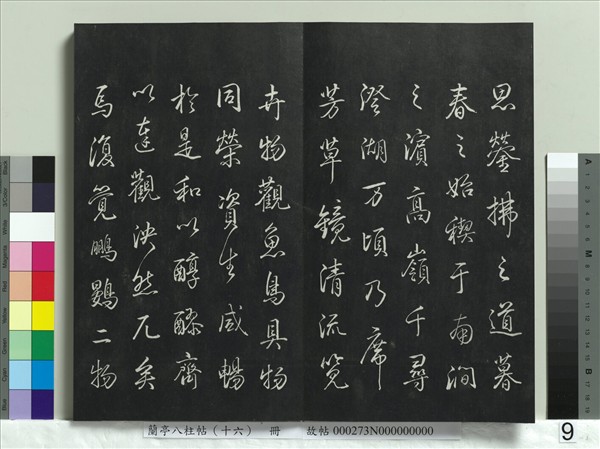 思縈拂之道暮
春之始禊于南澗
之濱高嶺千尋
澄湖万頃乃席
芳草鏡清流覽
卉物觀魚鳥具物
同榮資生咸暢
於是和以醇醪齊
以達觀泱然兀矣
焉復覺鵬鷃二物
蘭亭八柱帖（十六） 冊 故帖 000273N000000000
9
Black
3/Color
White
Magenta
Red
Yellow
Green
Cyan
Blue
A
M
B